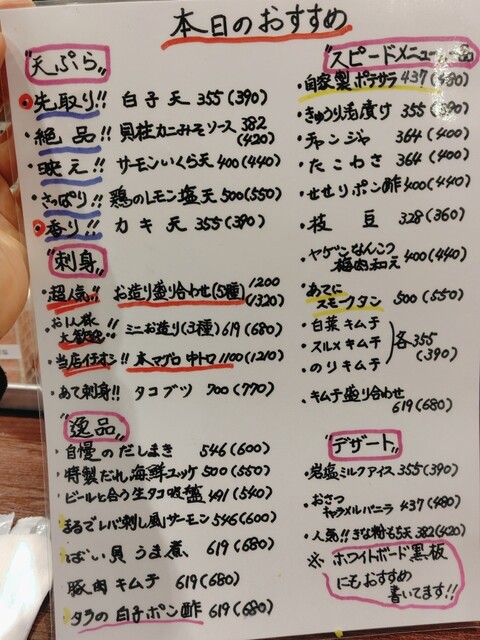 本日のおすすめ
天ぷら
先取り!! 白子天 355(390)
絶品!! 貝柱カニみそソース 382(420)
映え!! サーモンいくら天 400(440)
さっぱり!! 鶏のレモン塩天 500(550)
香り!! カキ天 355(390)
刺身
・超人気!! お造り盛り合わせ(5種) 1200(1320)
・お1人様大歓迎!! ミニお造り(3種) 619(680)
・当店イチオシ!! 本マグロ中トロ 1100(1210)
・あて刺身!! タコブツ 700(770)
逸品
・自慢のだしまき 546(600)
・特製だれ海鮮ユッケ 500(550)
・ビールと合う生タコ唐揚 491(540)
まるでレバ刺し風サーモン 546(600)
ばい貝うま煮、 619(680)
豚肉キムチ 619(680)
タラの白子ポン酢 619(680)
スピードメニュー一品
・自家製ポテサラ 437(480)
・きゅうり浅漬け 355(390)
・チャンジャ 364(400)
・たこわさ 364(400)
・せせりポン酢 400(440)
・枝豆 328(360)
・ヤゲンなんこつ梅肉和え 400(440)
・あてにスモークタン 500(550)
・白菜キムチ
・スルメキムチ 各355(390)
・のりキムチ
・キムチ盛り合わせ
619(680)
デザート
・岩塩ミルクアイス 355(390)
・おさつキャラメルバニラ 437(480)
・人気!!きな粉もち天 382(420)
※ホワイトボード黒板
にもおすすめ
書いてます!!